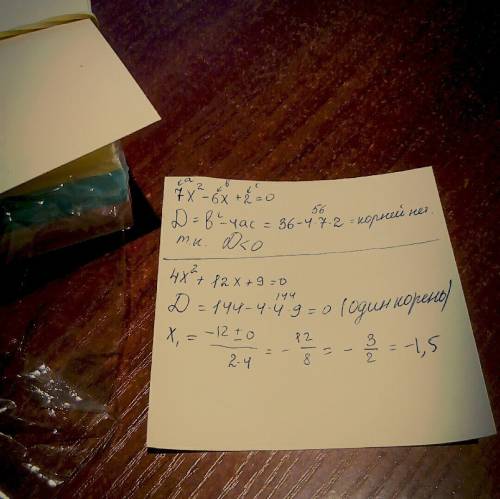 a b c
7x² - 6x + 2 = 0
56
D = b² - 4ac = 36 - 4·7·2 = корней нет.
т.к. D < 0
4x² + 12x + 9 = 0
144
D = 144 - 4·4·9 = 0 (один корень)
x₁ = (-12 ± 0)/(2·4) = - 12/8 = - 3/2 = -1,5